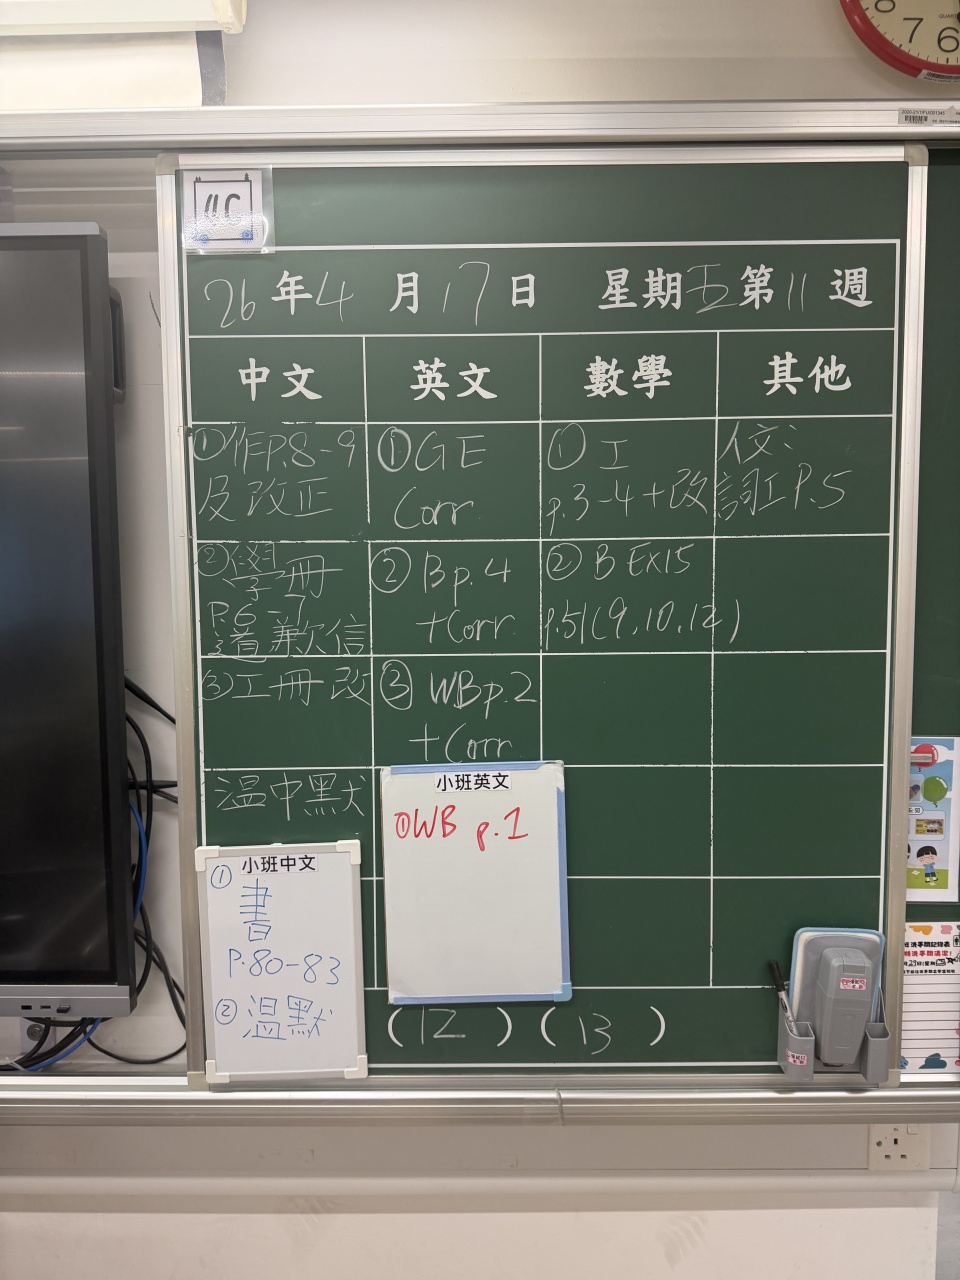 4C
26年4月17日 星期五第11週
中文 英文 數學 其他
①作P.8-9
及改正
②學冊
P.6-7
道歉信
③工冊改
溫中默
①GE
Corr.
②Bp.4
+Corr.
③WBp.2
+Corr.
①工
p.3-4+改
②BEX15
p.51(9,10,12)
交:
詞工P.5
小班中文
①
書
P.80-83
②溫默
小班英文
①WB p.1
(12)(13)
8 7 6
QUARTZ